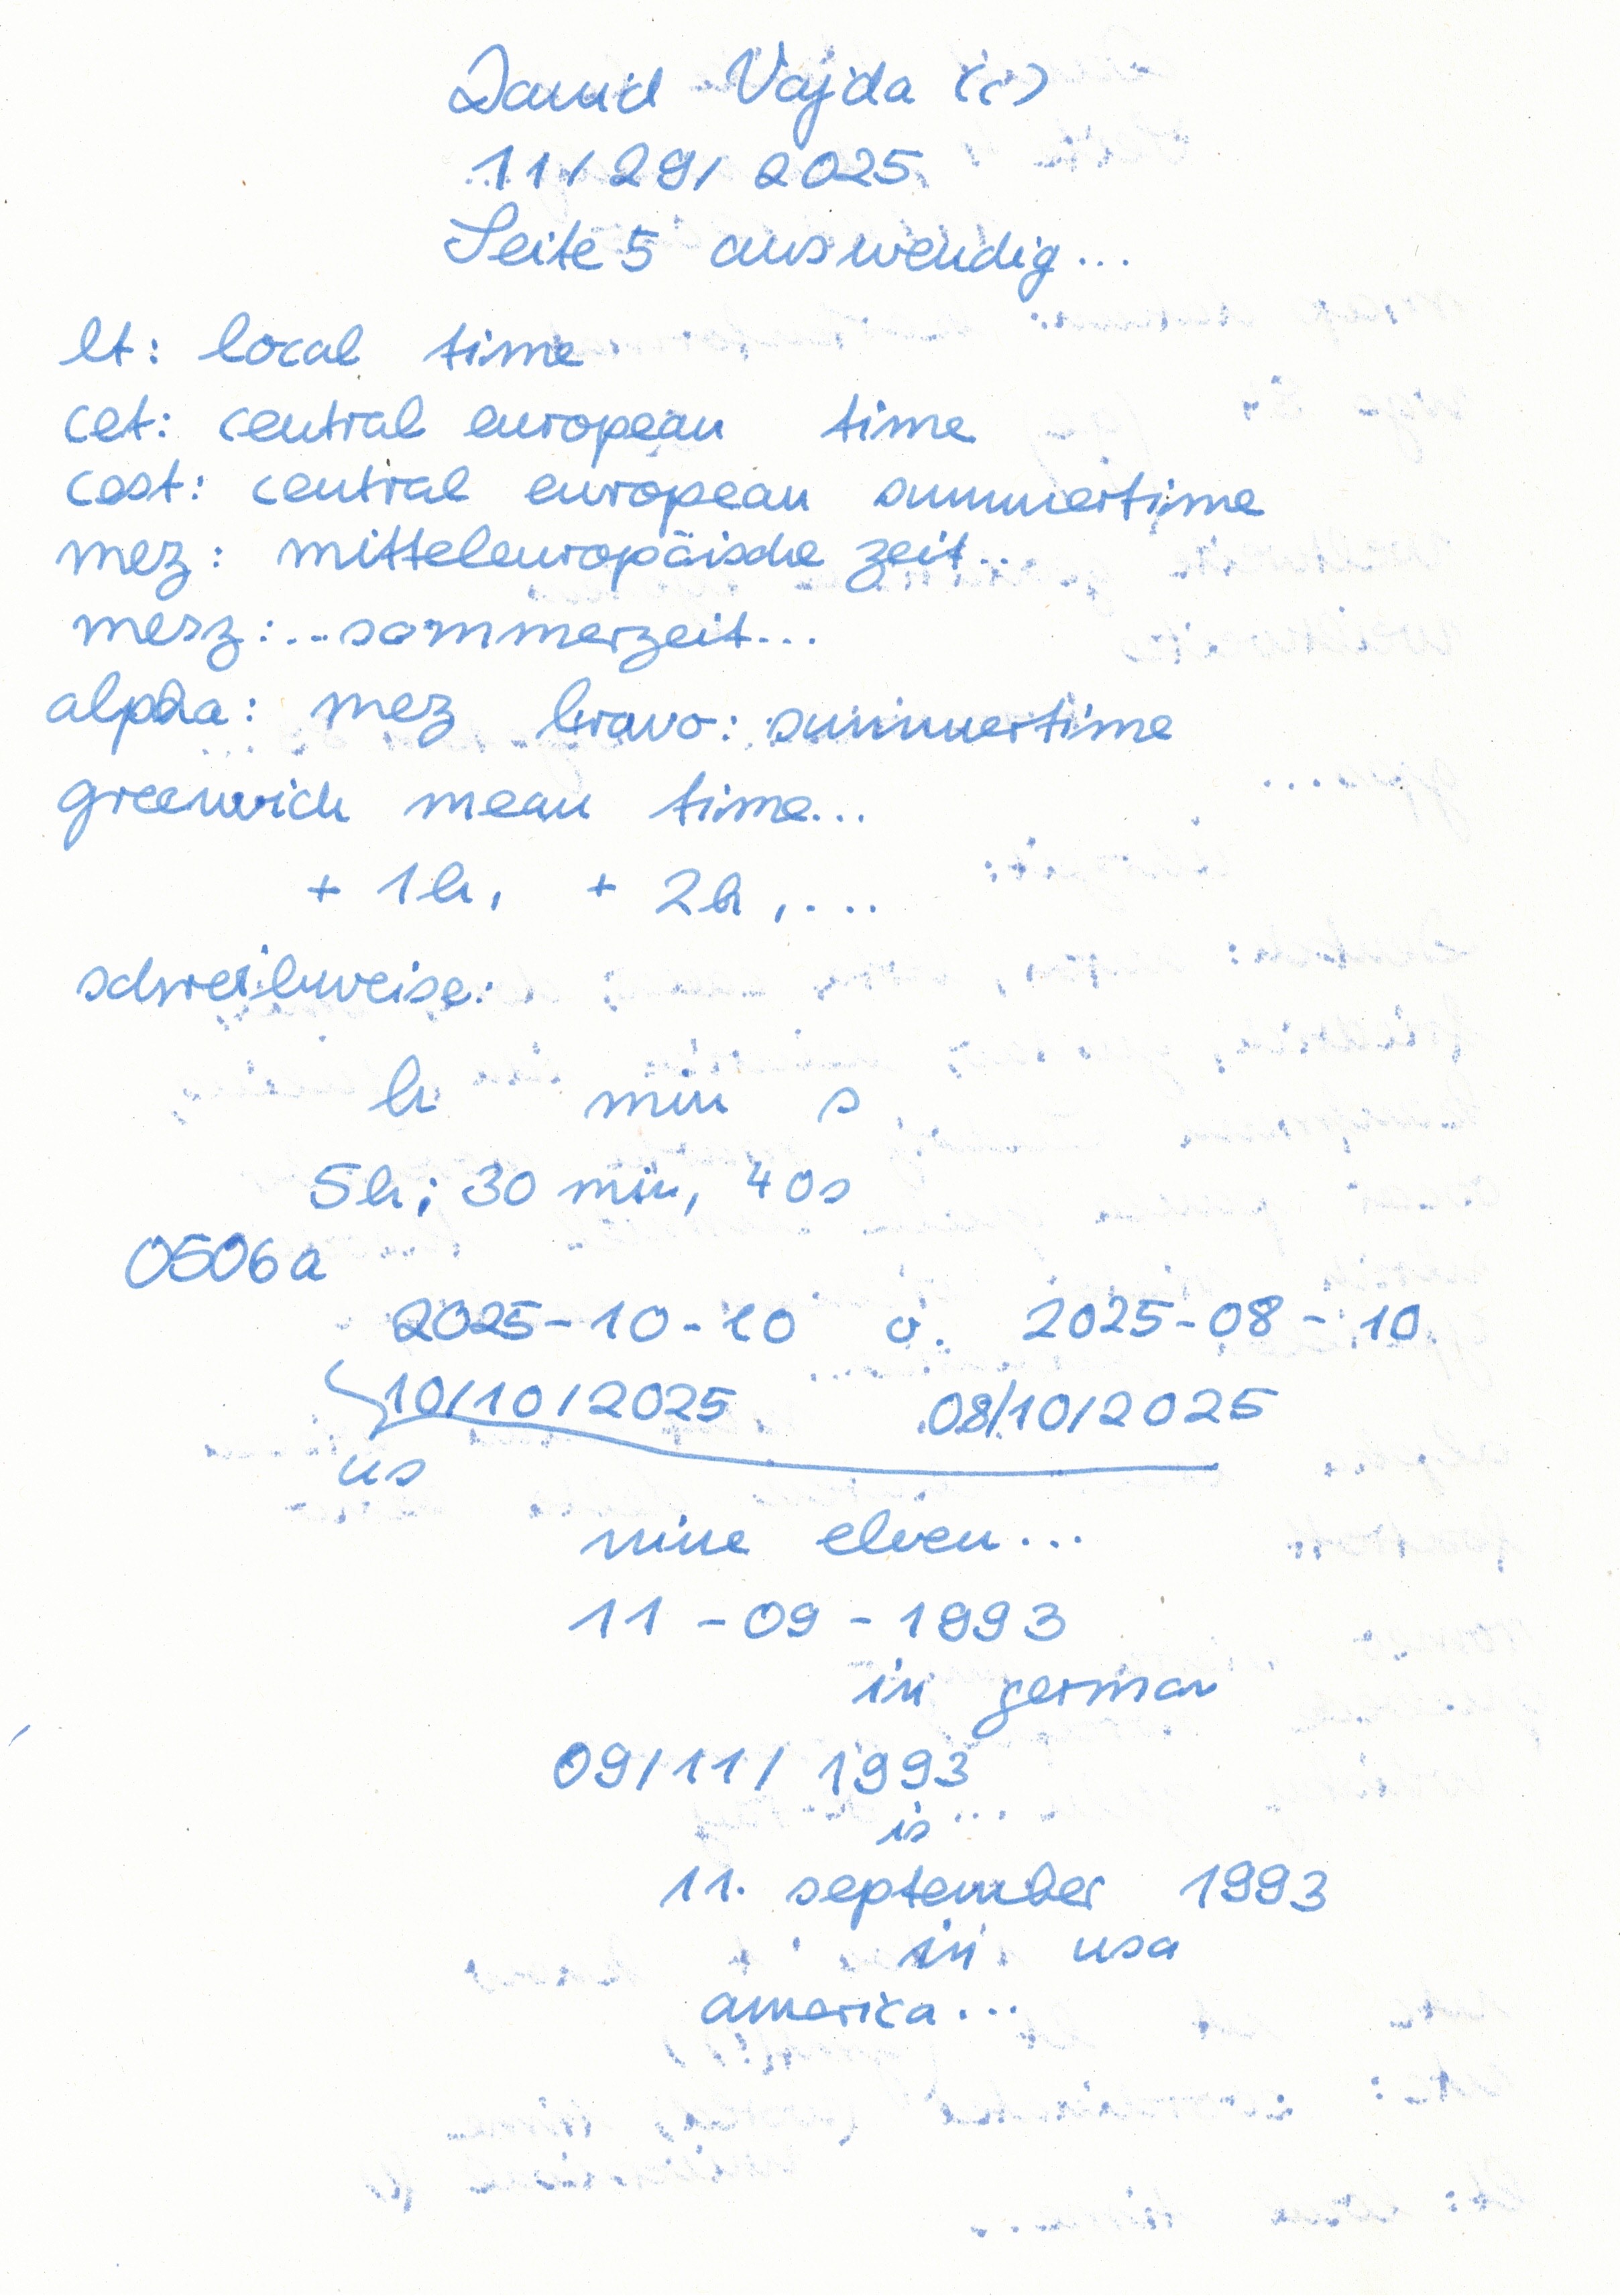 David Vajda (c)
11/29/2025
Seite 5 auswendig...
lt: local time
cet: central european time
cest: central european summertime
mez: mitteleuropäische zeit...
mesz: ...sommerzeit...
alpha: mez bravo: summertime
greenwich mean time...
+ 1h, + 2h, ...
schreibweise:
h min s
5h; 30 min, 40s
0506a
2025-10-10 o. 2025-08-10
10/10/2025 08/10/2025
us
nine eleven...
11-09-1993
in german
09/11/1993
is
11. september 1993
in usa
america...